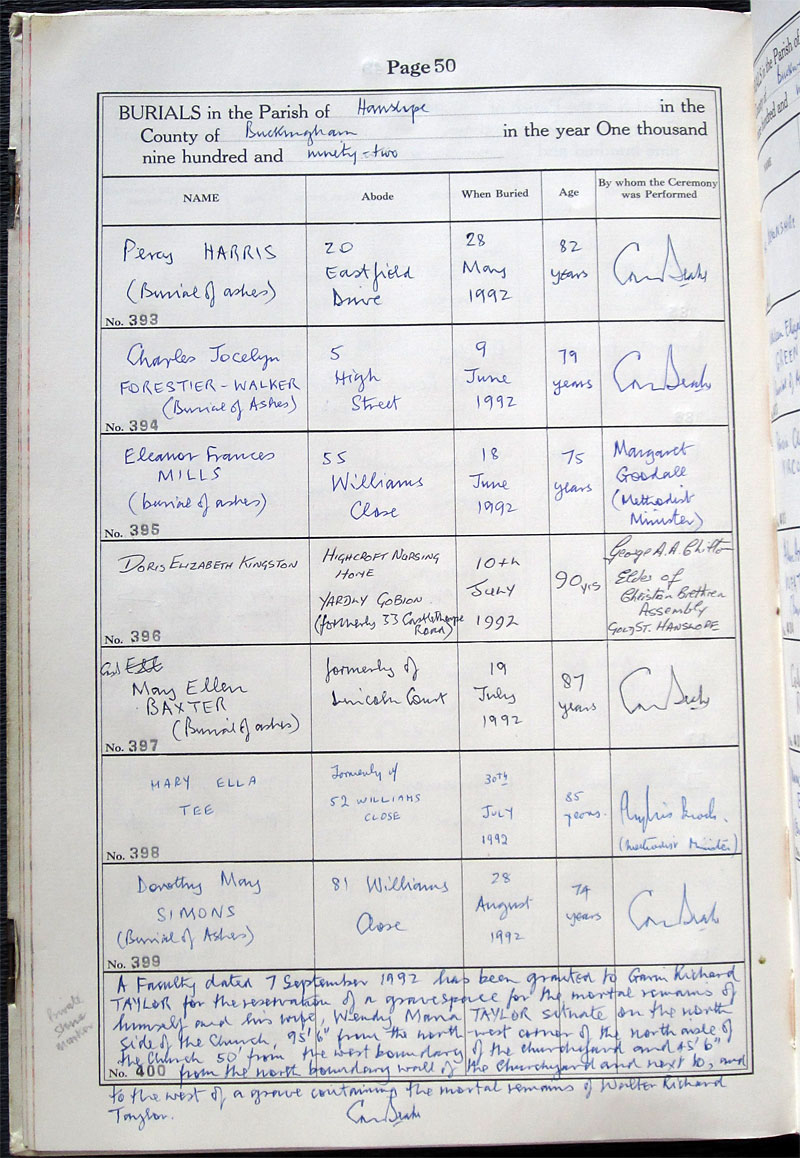 Page 50
BURIALS in the Parish of Hanslope in the
County of Buckingham in the year One thousand
nine hundred and ninety-two
NAME
Abode
When Buried
Age
By whom the Ceremony
was Performed
Percy HARRIS
(Burial of ashes)
No. 393
20
Eastfield
Drive
28
May
1992
82
years
Charles Jocelyn
FORESTIER-WALKER
(Burial of Ashes)
No. 394
5
High
Street
9
June
1992
79
years
Eleanor Frances
MILLS
(burial of ashes)
No. 395
55
Williams
Close
18
June
1992
75
years
Margaret
Goodall
(Methodist
Minister)
DORIS ELIZABETH KINGSTON
No. 396
HIGHCROFT NURSING
HOME
YARDLY GOBION.
(formerly 33 Castlethorpe
Road)
10th
JULY
1992
90 yrs
George A.A.
Elder of
Christian Brethren
Assembly
GOLD ST. HANSLOPE
May Ellen
BAXTER
(Burial of ashes)
No. 397
formerly of
Lincoln Court
19
July
1992
87
years
MARY ELLA
TEE
No. 398
Formerly of
52 WILLIAMS
CLOSE
30th
JULY
1992
85
years.
Phyllis
(Methodist Minister)
Dorothy May
SIMONS
(Burial of Ashes)
No. 399
81 Williams
Close
28
August
1992
74
years
A Faculty dated 7 September 1992 has been granted to Gavin Richard
TAYLOR for the reservation of a gravespace for the mortal remains of
himself and his wife, Wendy Maria TAYLOR situate on the north
side of the Church, 95'6" from the north west corner of the north aisle of
the Church 50' from the west boundary of the churchyard and 45'6"
No. 400 from the north boundary wall of the Churchyard and next to, and
to the west of a grave containing the mortal remains of Walter Richard
Taylor.